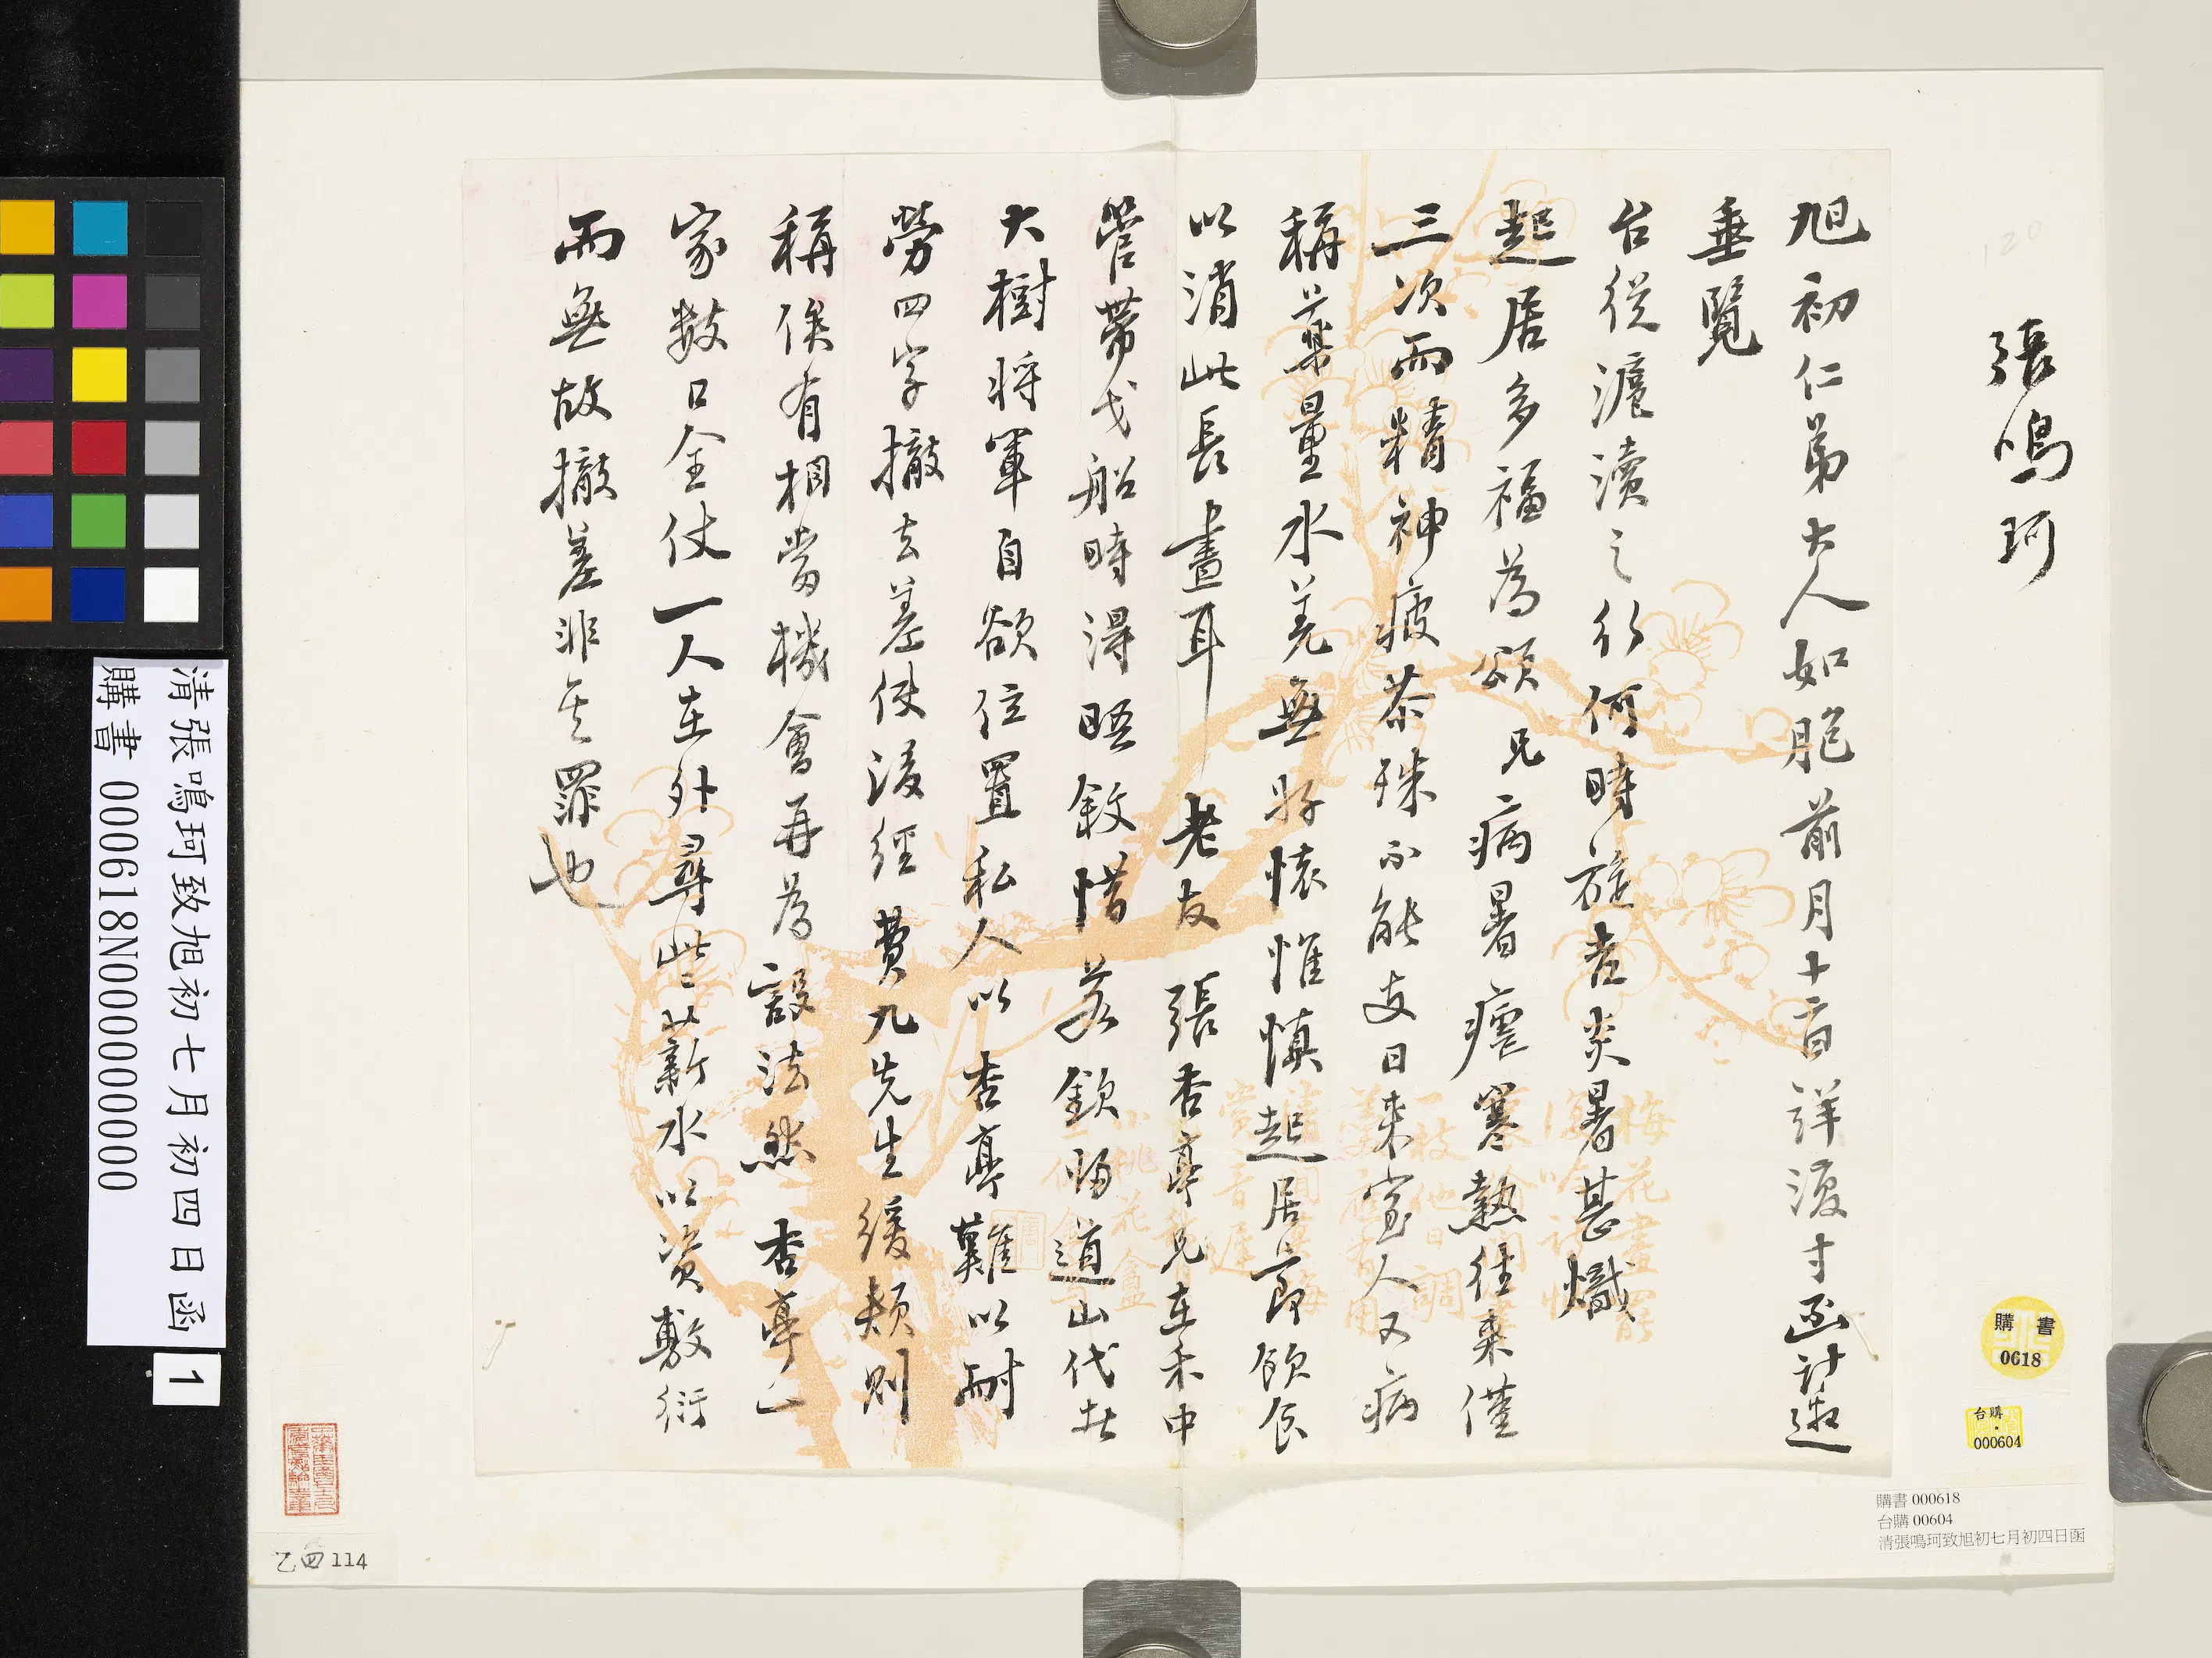 張鳴珂
旭初仁弟大人如胞前月十二日詳復寸函計邀
垂覽
台從滬瀆之行何時旋者炎暑甚熾
起居多福為頌兄病暑瘧寒熱往來僅
三次而精神疲茶殊不能支日來室人又病
稱藥量水羌無好懷惟慎起居節飲食
以消此長晝耳老友張杏亭兄在禾中
管帶戈船時得晤敘惜若欽歸道山代者
大樹將軍自欲位置私人以杏亭難以耐
勞四字撤去差使後經費九先生緩頰則
稱俟有相當機會再為設法然杏亭一
家數口全仗一人在外尋些薪水以資敷衍
而無故撤差非其罪也
購書
0618
台購
000604
購書 000618
台購 00604
清張鳴珂致旭初七月初四日函
清張鳴珂致旭初七月初四日函
購書 000618N000000000
1
乙四114